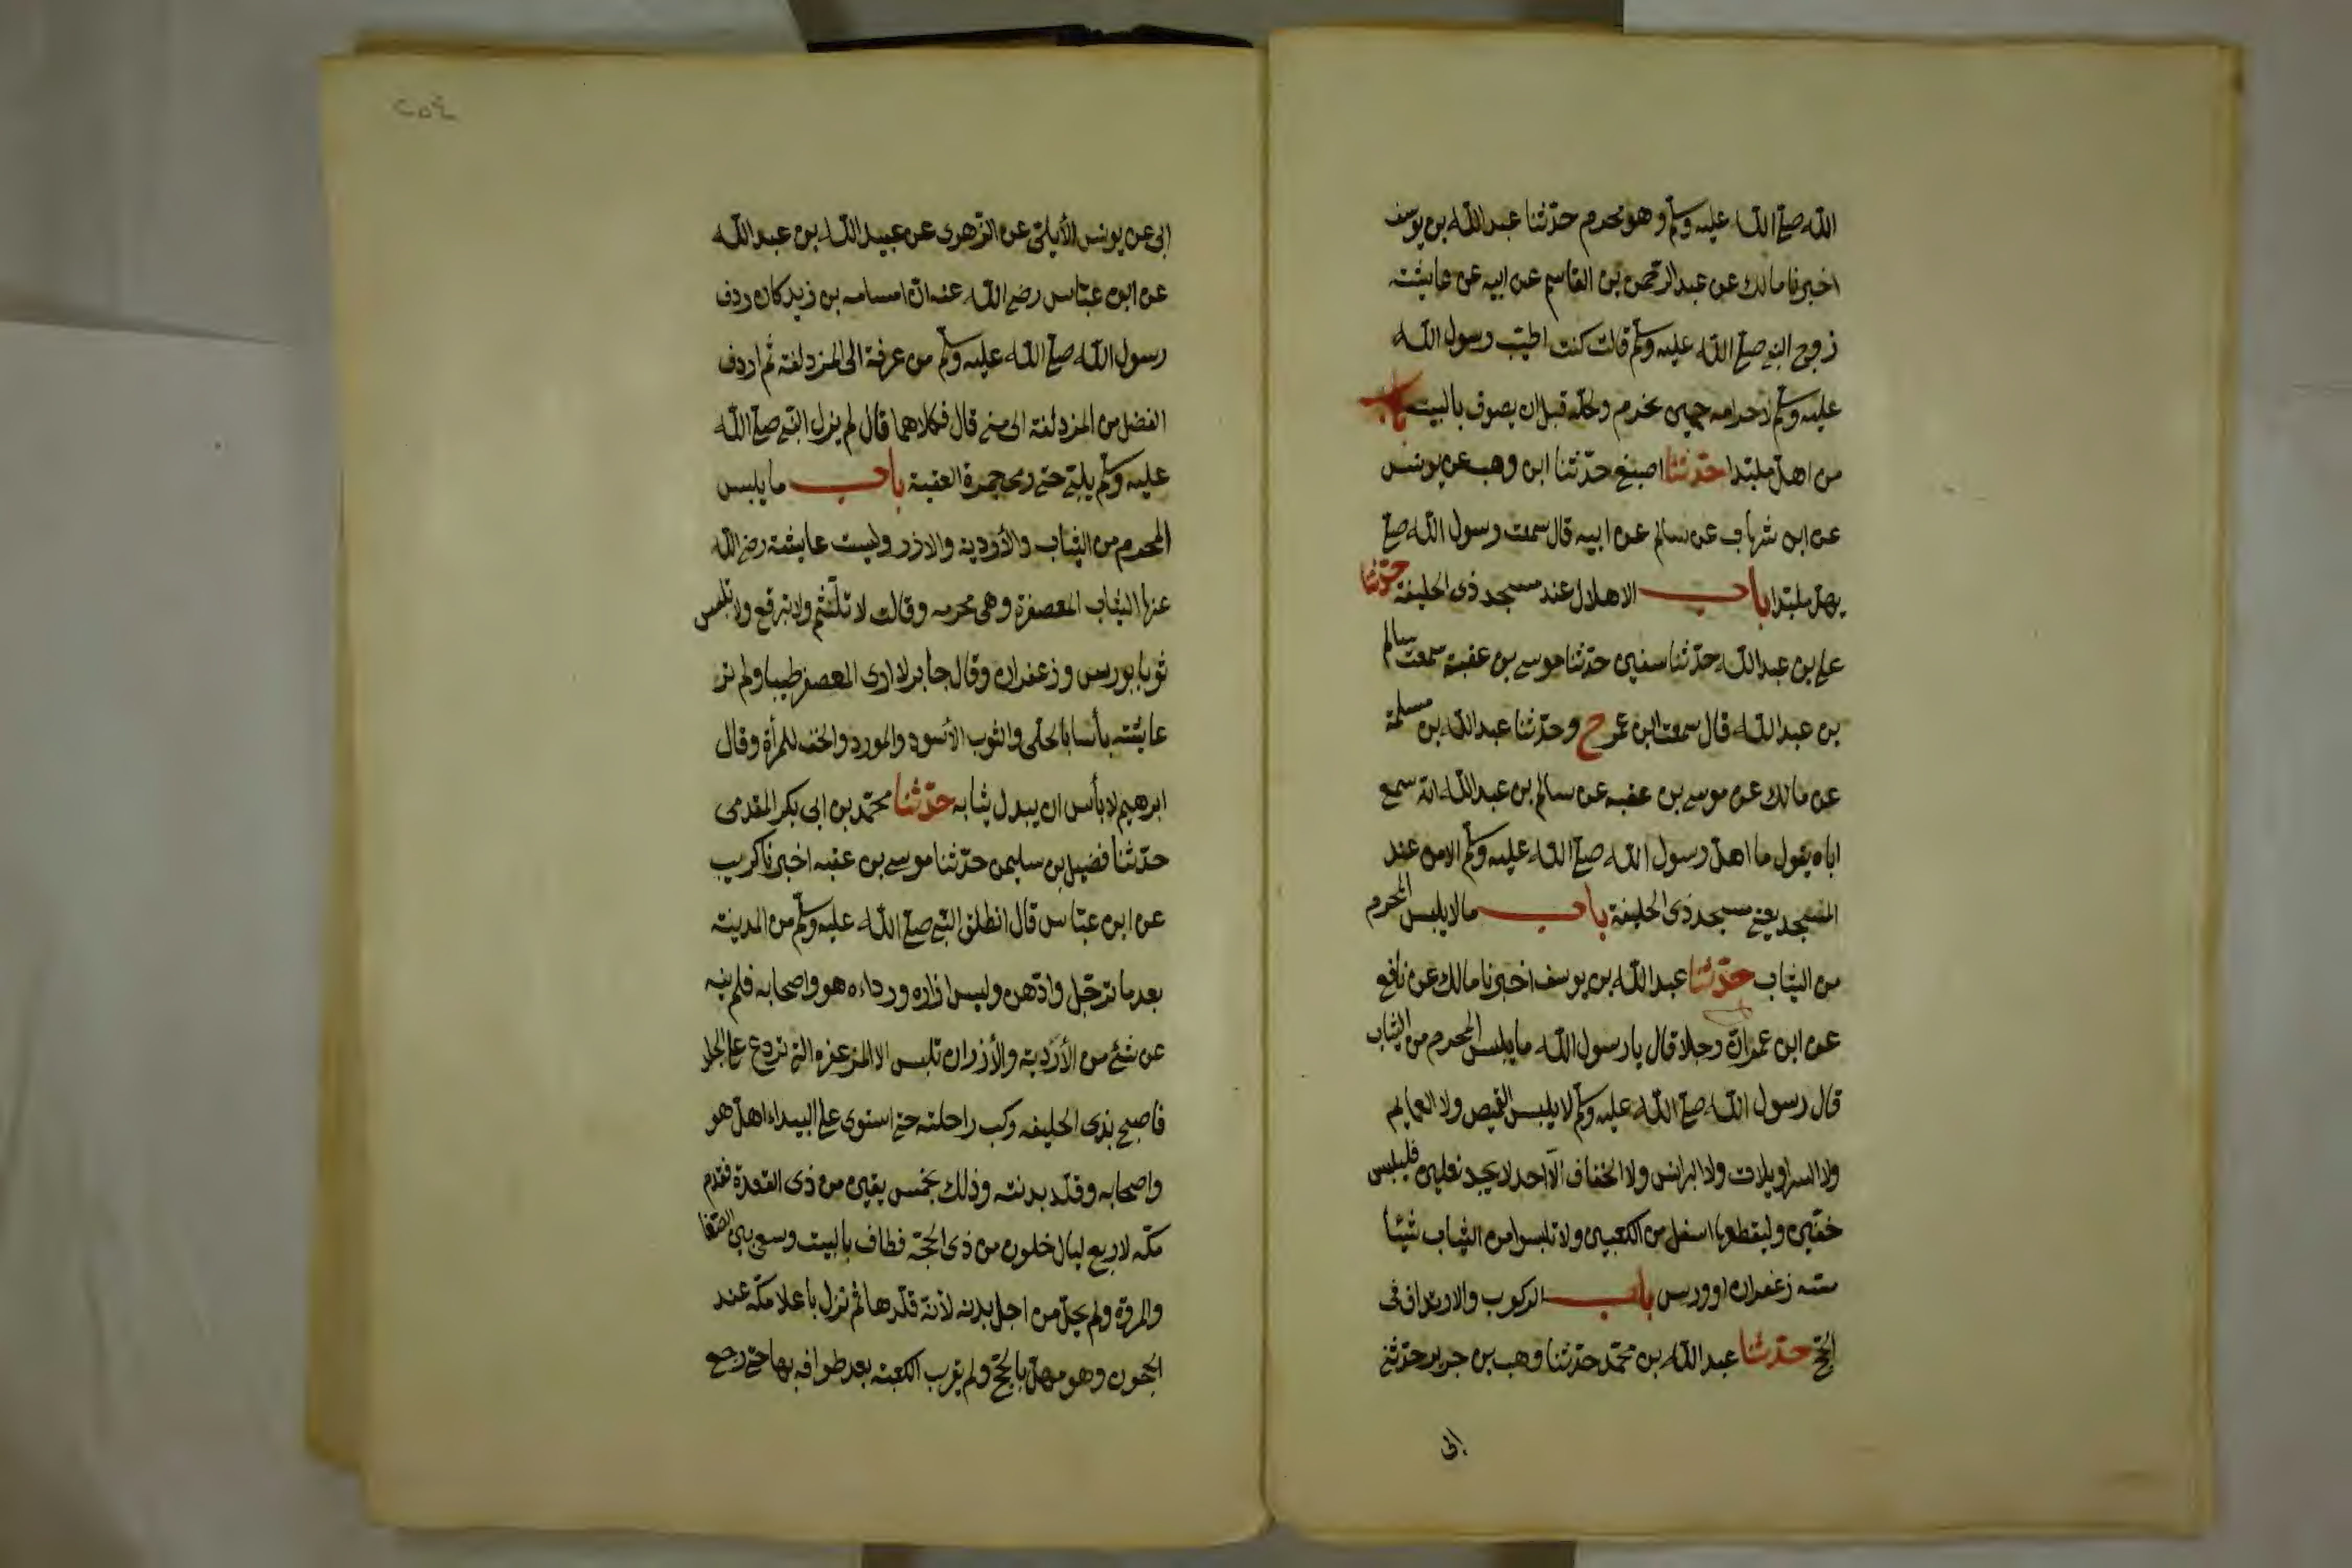 الله صلى الله عليه وسلم وهو محرم حدّثنا عبد الله بن يوسف
اخبرنا مالك عن عبد الرحمن بن القاسم عن ابيه عن عايشة
زوج النبى صلى الله عليه وسلم قالت كنت اطيب رسول الله
عليه وسلم لاحرامه حين يحرم ولحلّه قبل ان يصوف بالبيت باب
من اهلّ ملبّدا حدّثنا اصبغ حدّثنا ابن وهب عن يونس
عن ابن شهاب عن سالم عن ابيه قال سمعت رسول الله صلى
يهلّ ملبّدا باب الاهلال عند مسجد ذى الحليفة حدّثنا
على بن عبد الله حدّثنا سفين حدّثنا موسى بن عقبة سمعت سالم
بن عبد الله قال سمعت ابن عمر ح وحدّثنا عبد الله بن مسلمة
عن مالك عن موسى بن عقبه عن سالم بن عبد الله انّه سمع
اباه يقول ما اهلّ رسول الله صلى الله عليه وسلم الا من عند
المسجد يعنى مسجد ذى الحليفة باب ما لا يلبس المحرم
من الثياب حدّثنا عبد الله بن يوسف اخبرنا مالك عن نافع
عن ابن عمر انّ رجلا قال يا رسول الله ما يلبس المحرم من الثياب
قال رسول الله صلى الله عليه وسلم لا يلبس القميص ولا العمايم
ولا السراويلات ولا البرانس ولا الخفاف الّا احد لا يجد نعلين فليلبس
خفّين وليقطعهما اسفل من الكعبين ولا تلبسوا من الثياب شيًا
مسّه زعفران او ورس باب الركوب والارتداف فى
الحجّ حدّثنا عبد الله بن محمّد حدّثنا وهب بن جرير حدّثنى
ابى
٢٥٤
ابى عن يونس الأيلىّ عن الزّهرى عن عبيد الله بن عبد الله
عن ابن عبّاس رضى الله عنه انّ اسامه بن زيد كان ردف
رسول الله صلى الله عليه وسلم من عرفة الى المزدلفة ثم اردف
الفضل من المزدلفة الى منى قال فكلاهما قال لم يزل النبى صلى الله
عليه وسلم يلبّى حتى رمى جمرة العقبة باب ما يلبس
المحرم من الثياب والأردية والازر ولبست عايشة رضى الله
عنها الثياب المعصفرة وهى محرمه وقالت لا تلثّم ولا تبرقع ولا تلبس
ثوبا بورس وزعفران وقال جابر لا ارى المعصفر طيبا ولم تر
عايشة بأسا بالحلى والثوب الأسود والمورد والخف للمرأة وقال
ابرهيم لا بأس ان يبدل ثيابه حدّثنا محمّد بن ابى بكر المقدمى
حدّثنا فضيل بن سليمن حدّثنا موسى بن عقبه اخبرنا كريب
عن ابن عبّاس قال انطلق النبى صلى الله عليه وسلم من المدينة
بعد ما ترجّل وادّهن ولبس ازاره ورداءه هو واصحابه فلم ينه
عن شئ من الأردية والأزر ان تلبس الا المزعفره التى تردع على الجلد
فاصبح بذى الحليفه ركب راحلته حتى استوى على البيداء اهلّ هو
واصحابه وقلّد بدنته وذلك بخمس بقين من ذى القعدة فقدم
مكّه لاربع ليال خلون من ذى الحجّة فطاف بالبيت وسعى بين الصّفا
والمروة ولم يحلّ من اجل بدنه لأنّه قلّدها ثم نزل باعلا مكّه عند
الحجون وهو مهلّ بالحجّ ولم يقرب الكعبة بعد طوافه بها حتى رجع